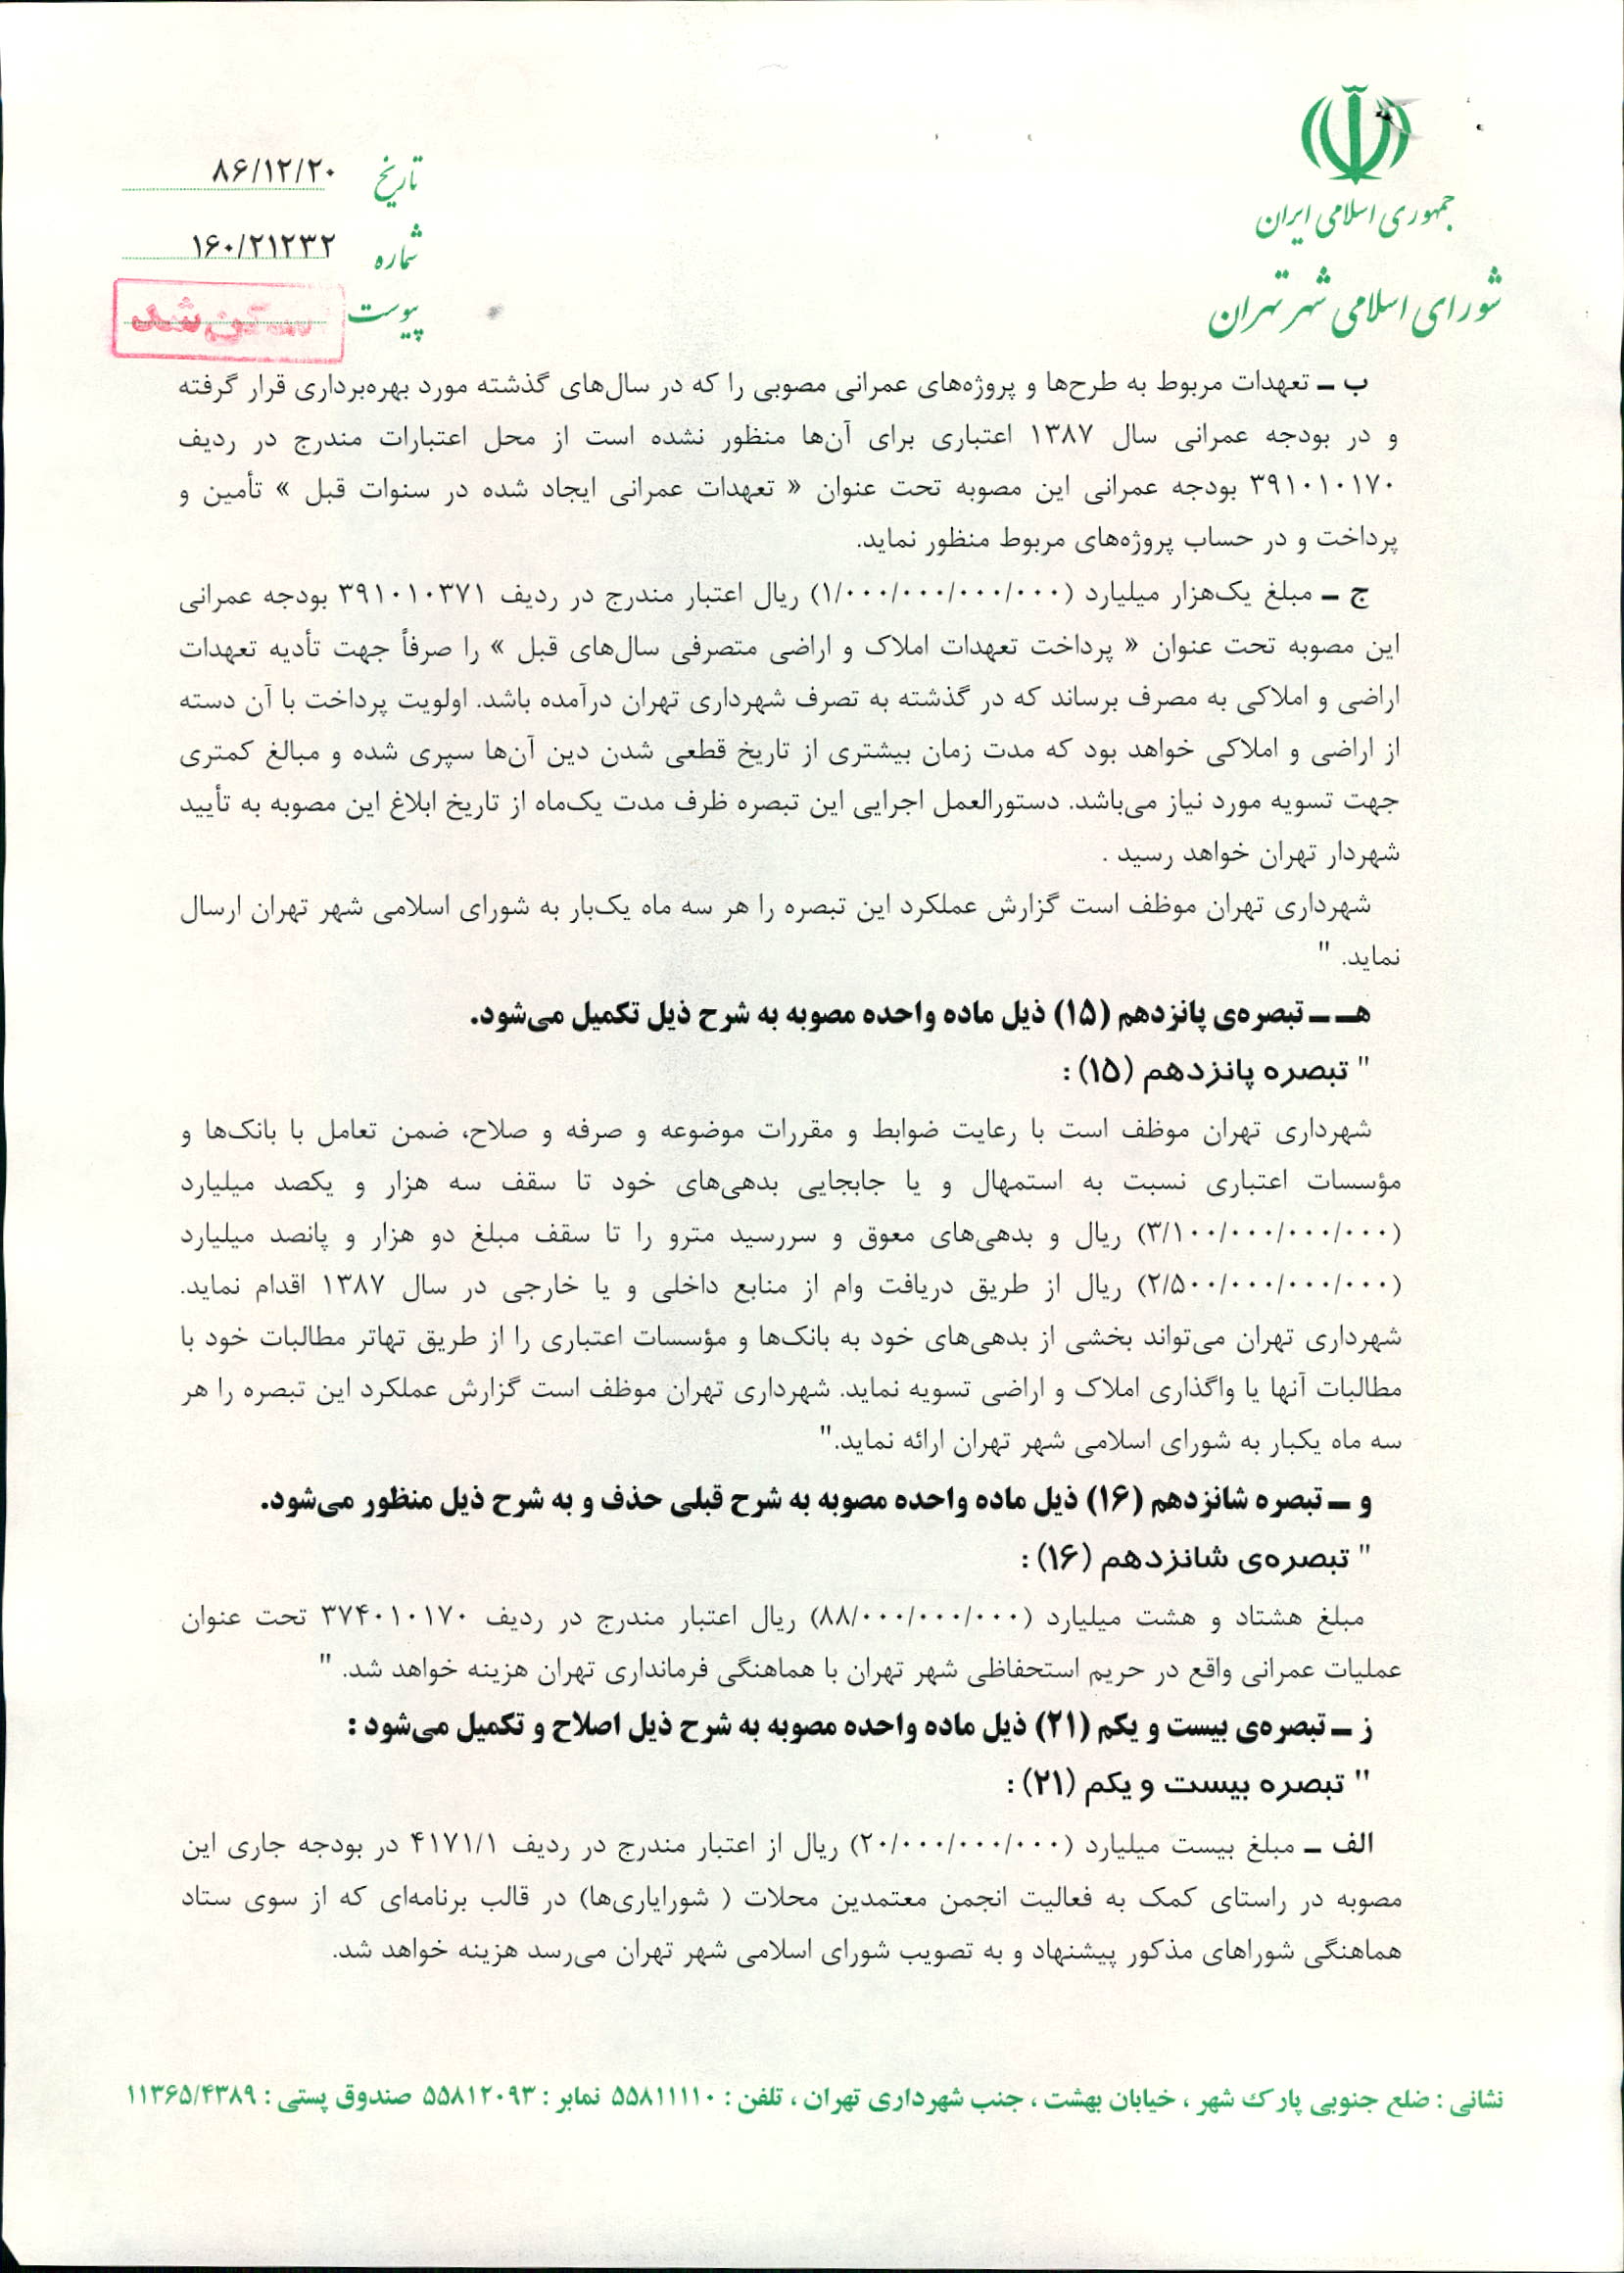 جمهوری اسلامی ایران
شورای اسلامی شهر تهران
تاریخ ۸۶/۱۲/۲۰
شماره ۱۶۰/۲۱۲۳۲
پیوست
سکن شد
ب ـ تعهدات مربوط به طرح‌ها و پروژه‌های عمرانی مصوبی را که در سال‌های گذشته مورد بهره‌برداری قرار گرفته
و در بودجه عمرانی سال ۱۳۸۷ اعتباری برای آن‌ها منظور نشده است از محل اعتبارات مندرج در ردیف
۳۹۱۰۱۰۱۷۰ بودجه عمرانی این مصوبه تحت عنوان « تعهدات عمرانی ایجاد شده در سنوات قبل » تأمین و
پرداخت و در حساب پروژه‌های مربوط منظور نماید.
ج ـ مبلغ یک‌هزار میلیارد (۱/۰۰۰/۰۰۰/۰۰۰/۰۰۰) ریال اعتبار مندرج در ردیف ۳۹۱۰۱۰۳۷۱ بودجه عمرانی
این مصوبه تحت عنوان « پرداخت تعهدات املاک و اراضی متصرفی سال‌های قبل » را صرفاً جهت تأدیه تعهدات
اراضی و املاکی به مصرف برساند که در گذشته به تصرف شهرداری تهران درآمده باشد. اولویت پرداخت با آن دسته
از اراضی و املاکی خواهد بود که مدت زمان بیشتری از تاریخ قطعی شدن دین آن‌ها سپری شده و مبالغ کمتری
جهت تسویه مورد نیاز می‌باشد. دستورالعمل اجرایی این تبصره ظرف مدت یک‌ماه از تاریخ ابلاغ این مصوبه به تأیید
شهردار تهران خواهد رسید .
شهرداری تهران موظف است گزارش عملکرد این تبصره را هر سه ماه یک‌بار به شورای اسلامی شهر تهران ارسال
نماید. "
هـ ـ تبصره‌ی پانزدهم (۱۵) ذیل ماده واحده مصوبه به شرح ذیل تکمیل می‌شود.
" تبصره پانزدهم (۱۵) :
شهرداری تهران موظف است با رعایت ضوابط و مقررات موضوعه و صرفه و صلاح، ضمن تعامل با بانک‌ها و
مؤسسات اعتباری نسبت به استمهال و یا جابجایی بدهی‌های خود تا سقف سه هزار و یکصد میلیارد
(۳/۱۰۰/۰۰۰/۰۰۰/۰۰۰) ریال و بدهی‌های معوق و سررسید مترو را تا سقف مبلغ دو هزار و پانصد میلیارد
(۲/۵۰۰/۰۰۰/۰۰۰/۰۰۰) ریال از طریق دریافت وام از منابع داخلی و یا خارجی در سال ۱۳۸۷ اقدام نماید.
شهرداری تهران می‌تواند بخشی از بدهی‌های خود به بانک‌ها و مؤسسات اعتباری را از طریق تهاتر مطالبات خود با
مطالبات آنها یا واگذاری املاک و اراضی تسویه نماید. شهرداری تهران موظف است گزارش عملکرد این تبصره را هر
سه ماه یکبار به شورای اسلامی شهر تهران ارائه نماید."
و ـ تبصره شانزدهم (۱۶) ذیل ماده واحده مصوبه به شرح قبلی حذف و به شرح ذیل منظور می‌شود.
" تبصره‌ی شانزدهم (۱۶) :
مبلغ هشتاد و هشت میلیارد (۸۸/۰۰۰/۰۰۰/۰۰۰) ریال اعتبار مندرج در ردیف ۳۷۴۰۱۰۱۷۰ تحت عنوان
عملیات عمرانی واقع در حریم استحفاظی شهر تهران با هماهنگی فرمانداری تهران هزینه خواهد شد. "
ز ـ تبصره‌ی بیست و یکم (۲۱) ذیل ماده واحده مصوبه به شرح ذیل اصلاح و تکمیل می‌شود :
" تبصره بیست و یکم (۲۱) :
الف ـ مبلغ بیست میلیارد (۲۰/۰۰۰/۰۰۰/۰۰۰) ریال از اعتبار مندرج در ردیف ۴۱۷۱/۱ در بودجه جاری این
مصوبه در راستای کمک به فعالیت انجمن معتمدین محلات ( شورایاری‌ها) در قالب برنامه‌ای که از سوی ستاد
هماهنگی شوراهای مذکور پیشنهاد و به تصویب شورای اسلامی شهر تهران می‌رسد هزینه خواهد شد.
نشانی : ضلع جنوبی پارک شهر ، خیابان بهشت ، جنب شهرداری تهران ، تلفن : ۵۵۸۱۱۱۱۰ نمابر : ۵۵۸۱۲۰۹۳ صندوق پستی : ۱۱۳۶۵/۴۳۸۹